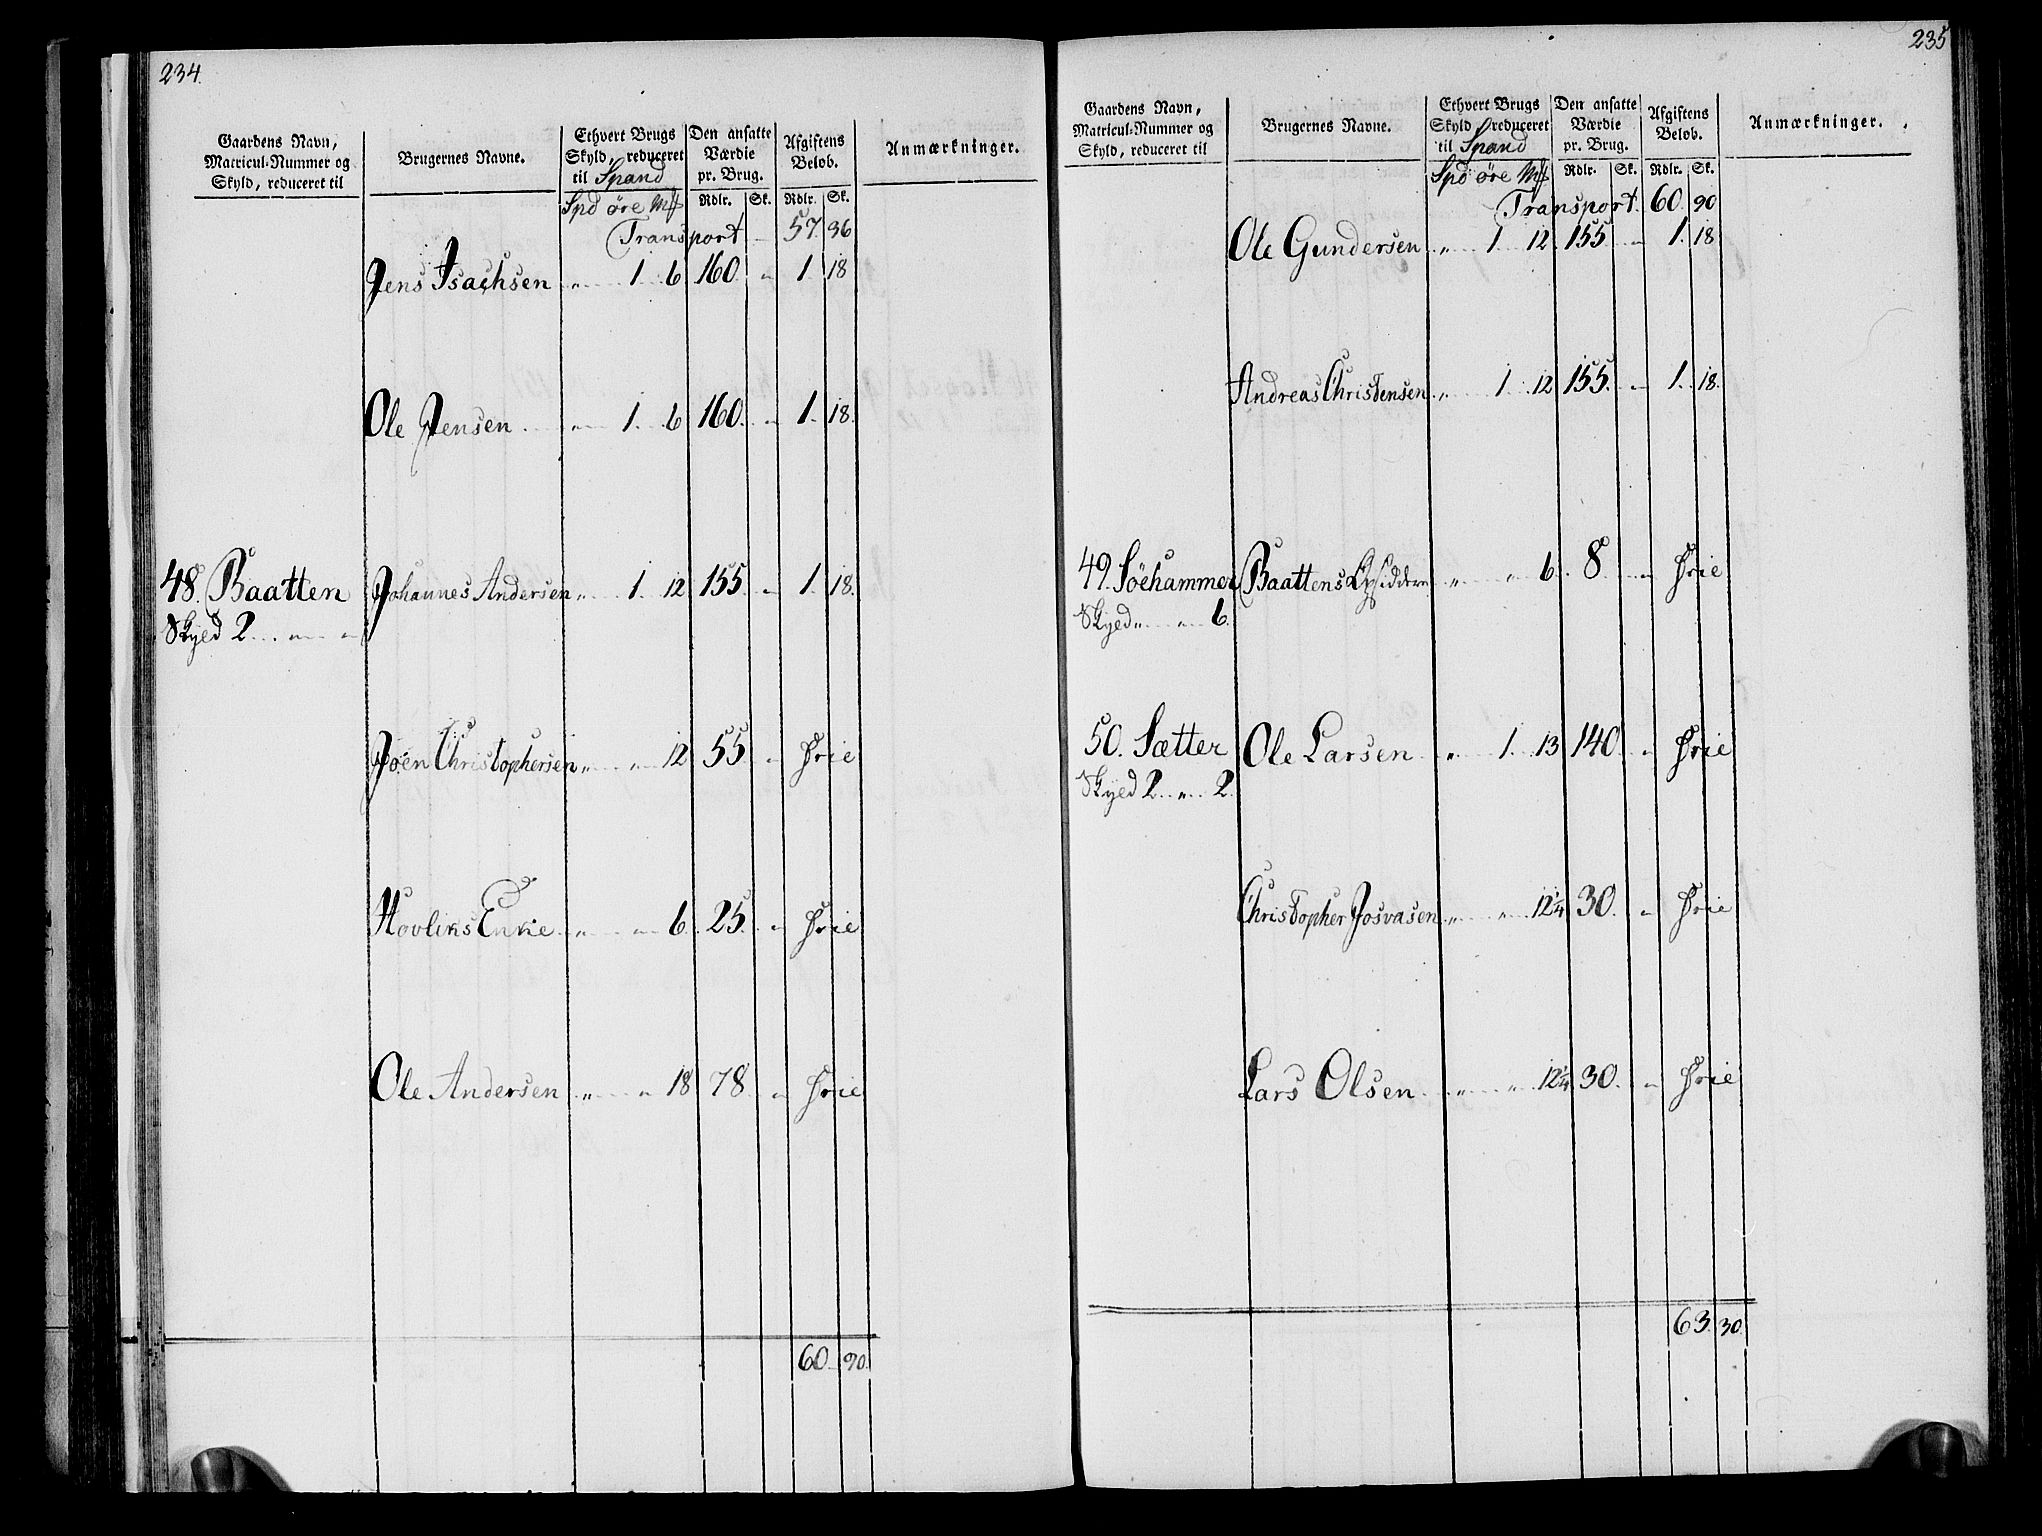 234.
Gaardens Navn,
Matricul-Nummer og
Skyld, reduceret til
Brugernes Navne.
Ethvert Brugs
Skyld, reduceret
til Spand
Spd øre Mk
Den ansatte
Værdie
pr. Brug.
Rdlr. Sk.
Afgiftens
Belob.
Rdlr. Sk.
Anmærkninger.
Transport 57. 36
Jens Isachsen „ 1. 6 160. „ 1. 18
Ole Jensen „ 1. 6 160. „ 1. 18.
48. Baatten Johannes Andersen „ 1. 12 155. „ 1. 18.
Skyed 2. „ „
Joen Christophersen „ „ 12 55 „ Frie
Hovliks Enke „ „ 6. 25. „ Frie
Ole Andersen „ „ 18 78 „ Frie
60. 90.
235
Gaardens Navn,
Matricul-Nummer og
Skyld, reduceret til
Brugernes Navne.
Ethvert Brugs
Skyld, reduceret
til Spand
Spd øre Mk
Den ansatte
Værdie
pr. Brug.
Rdlr. Sk.
Afgiftens
Belob.
Rdlr. Sk.
Anmærkninger.
Transport. 60. 90
Ole Gundersen „ 1. 12 155 „ 1. 18
Andreas Christensen „ 1. 12 155. „ 1. 18.
49. Söehammer Baattens Opsiddere „ „ 6. 8. „ Frie
Skyed „ „ 6.
50. Sætter Ole Larsen „ 1. 13 140. „ Frie
Skyed 2. „ 2.
Christopher Josvasen „ „ 12 1/4 30. „ Frie
Lars Olsen „ „ 12 1/4 30. „ Frie
63. 30.